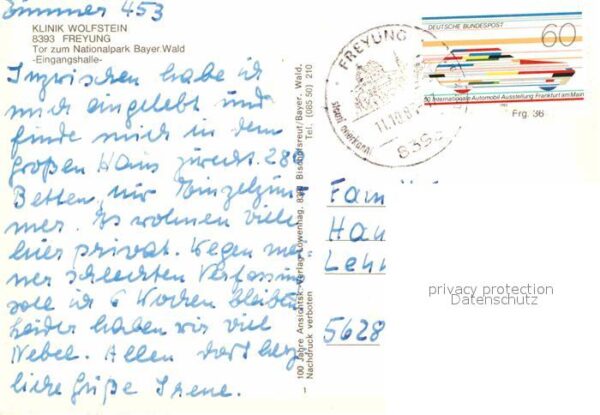 Zimmer 453
KLINIK WOLFSTEIN
8393 FREYUNG
Tor zum Nationalpark Bayer. Wald
-Eingangshalle-
Inzwischen habe ich
mich eingelebt und
finde mich in dem
großen Haus zurecht. 280
Betten, nur Einzelzim-
mer. Es wohnen viele
hier privat. Wegen mei-
ner schlechten Verfassung
soll ich 6 Wochen bleiben
Leider haben wir viel
Nebel. Allen dort herz-
liche Grüße Irene.
100 Jahre Ansichtsk.-Verlag Löwenhag, 8391 Bischofsreut/Bayer. Wald.
Nachdruck verboten
Tel. (085 50) 210
1
FREYUNG
staatl. anerkannt
11.10.83
8393
DEUTSCHE BUNDESPOST
60
50 Internationale Automobil Ausstellung Frankfurt am Main
Frg. 36
Fam
Hau
Lehr
5628
privacy protection
Datenschutz